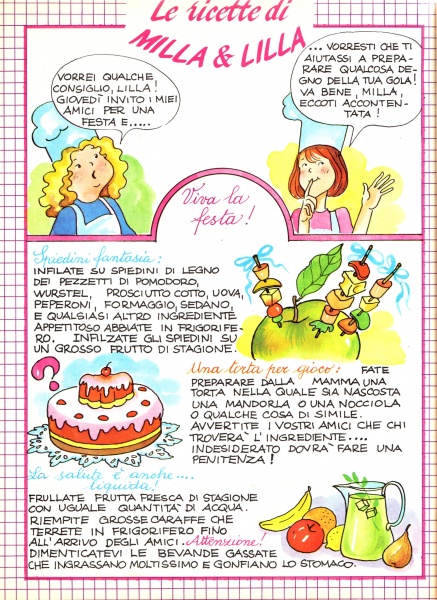 Le ricette di
MILLA & LILLA
VORREI QUALCHE
CONSIGLIO, LILLA!
GIOVEDÌ INVITO I MIEI
AMICI PER UNA
FESTA E.....
... VORRESTI CHE TI
AIUTASSI A PREPA-
RARE QUALCOSA DE-
GNO DELLA TUA GOLA!
VA BENE, MILLA,
ECCOTI ACCONTEN-
TATA!
Viva la
festa!
Spiedini fantasia:
INFILATE SU SPIEDINI DI LEGNO
DEI PEZZETTI DI POMODORO,
WURSTEL, PROSCIUTTO COTTO, UOVA,
PEPERONI, FORMAGGIO, SEDANO,
E QUALSIASI ALTRO INGREDIENTE
APPETITOSO ABBIATE IN FRIGORIFE-
RO. INFILZATE GLI SPIEDINI SU
UN GROSSO FRUTTO DI STAGIONE.
Una torta per gioco: FATE
PREPARARE DALLA MAMMA UNA
TORTA NELLA QUALE SIA NASCOSTA
UNA MANDORLA O UNA NOCCIOLA
O QUALCHE COSA DI SIMILE.
AVVERTITE I VOSTRI AMICI CHE CHI
TROVERÀ L'INGREDIENTE....
INDESIDERATO DOVRÀ FARE UNA
PENITENZA!
?
La salute è anche....
liquida!
FRULLATE FRUTTA FRESCA DI STAGIONE
CON UGUALE QUANTITÀ DI ACQUA.
RIEMPITE GROSSE CARAFFE CHE
TERRETE IN FRIGORIFERO FINO
ALL'ARRIVO DEGLI AMICI. Attenzione!
DIMENTICATEVI LE BEVANDE GASSATE
CHE INGRASSANO MOLTISSIMO E GONFIANO LO STOMACO.